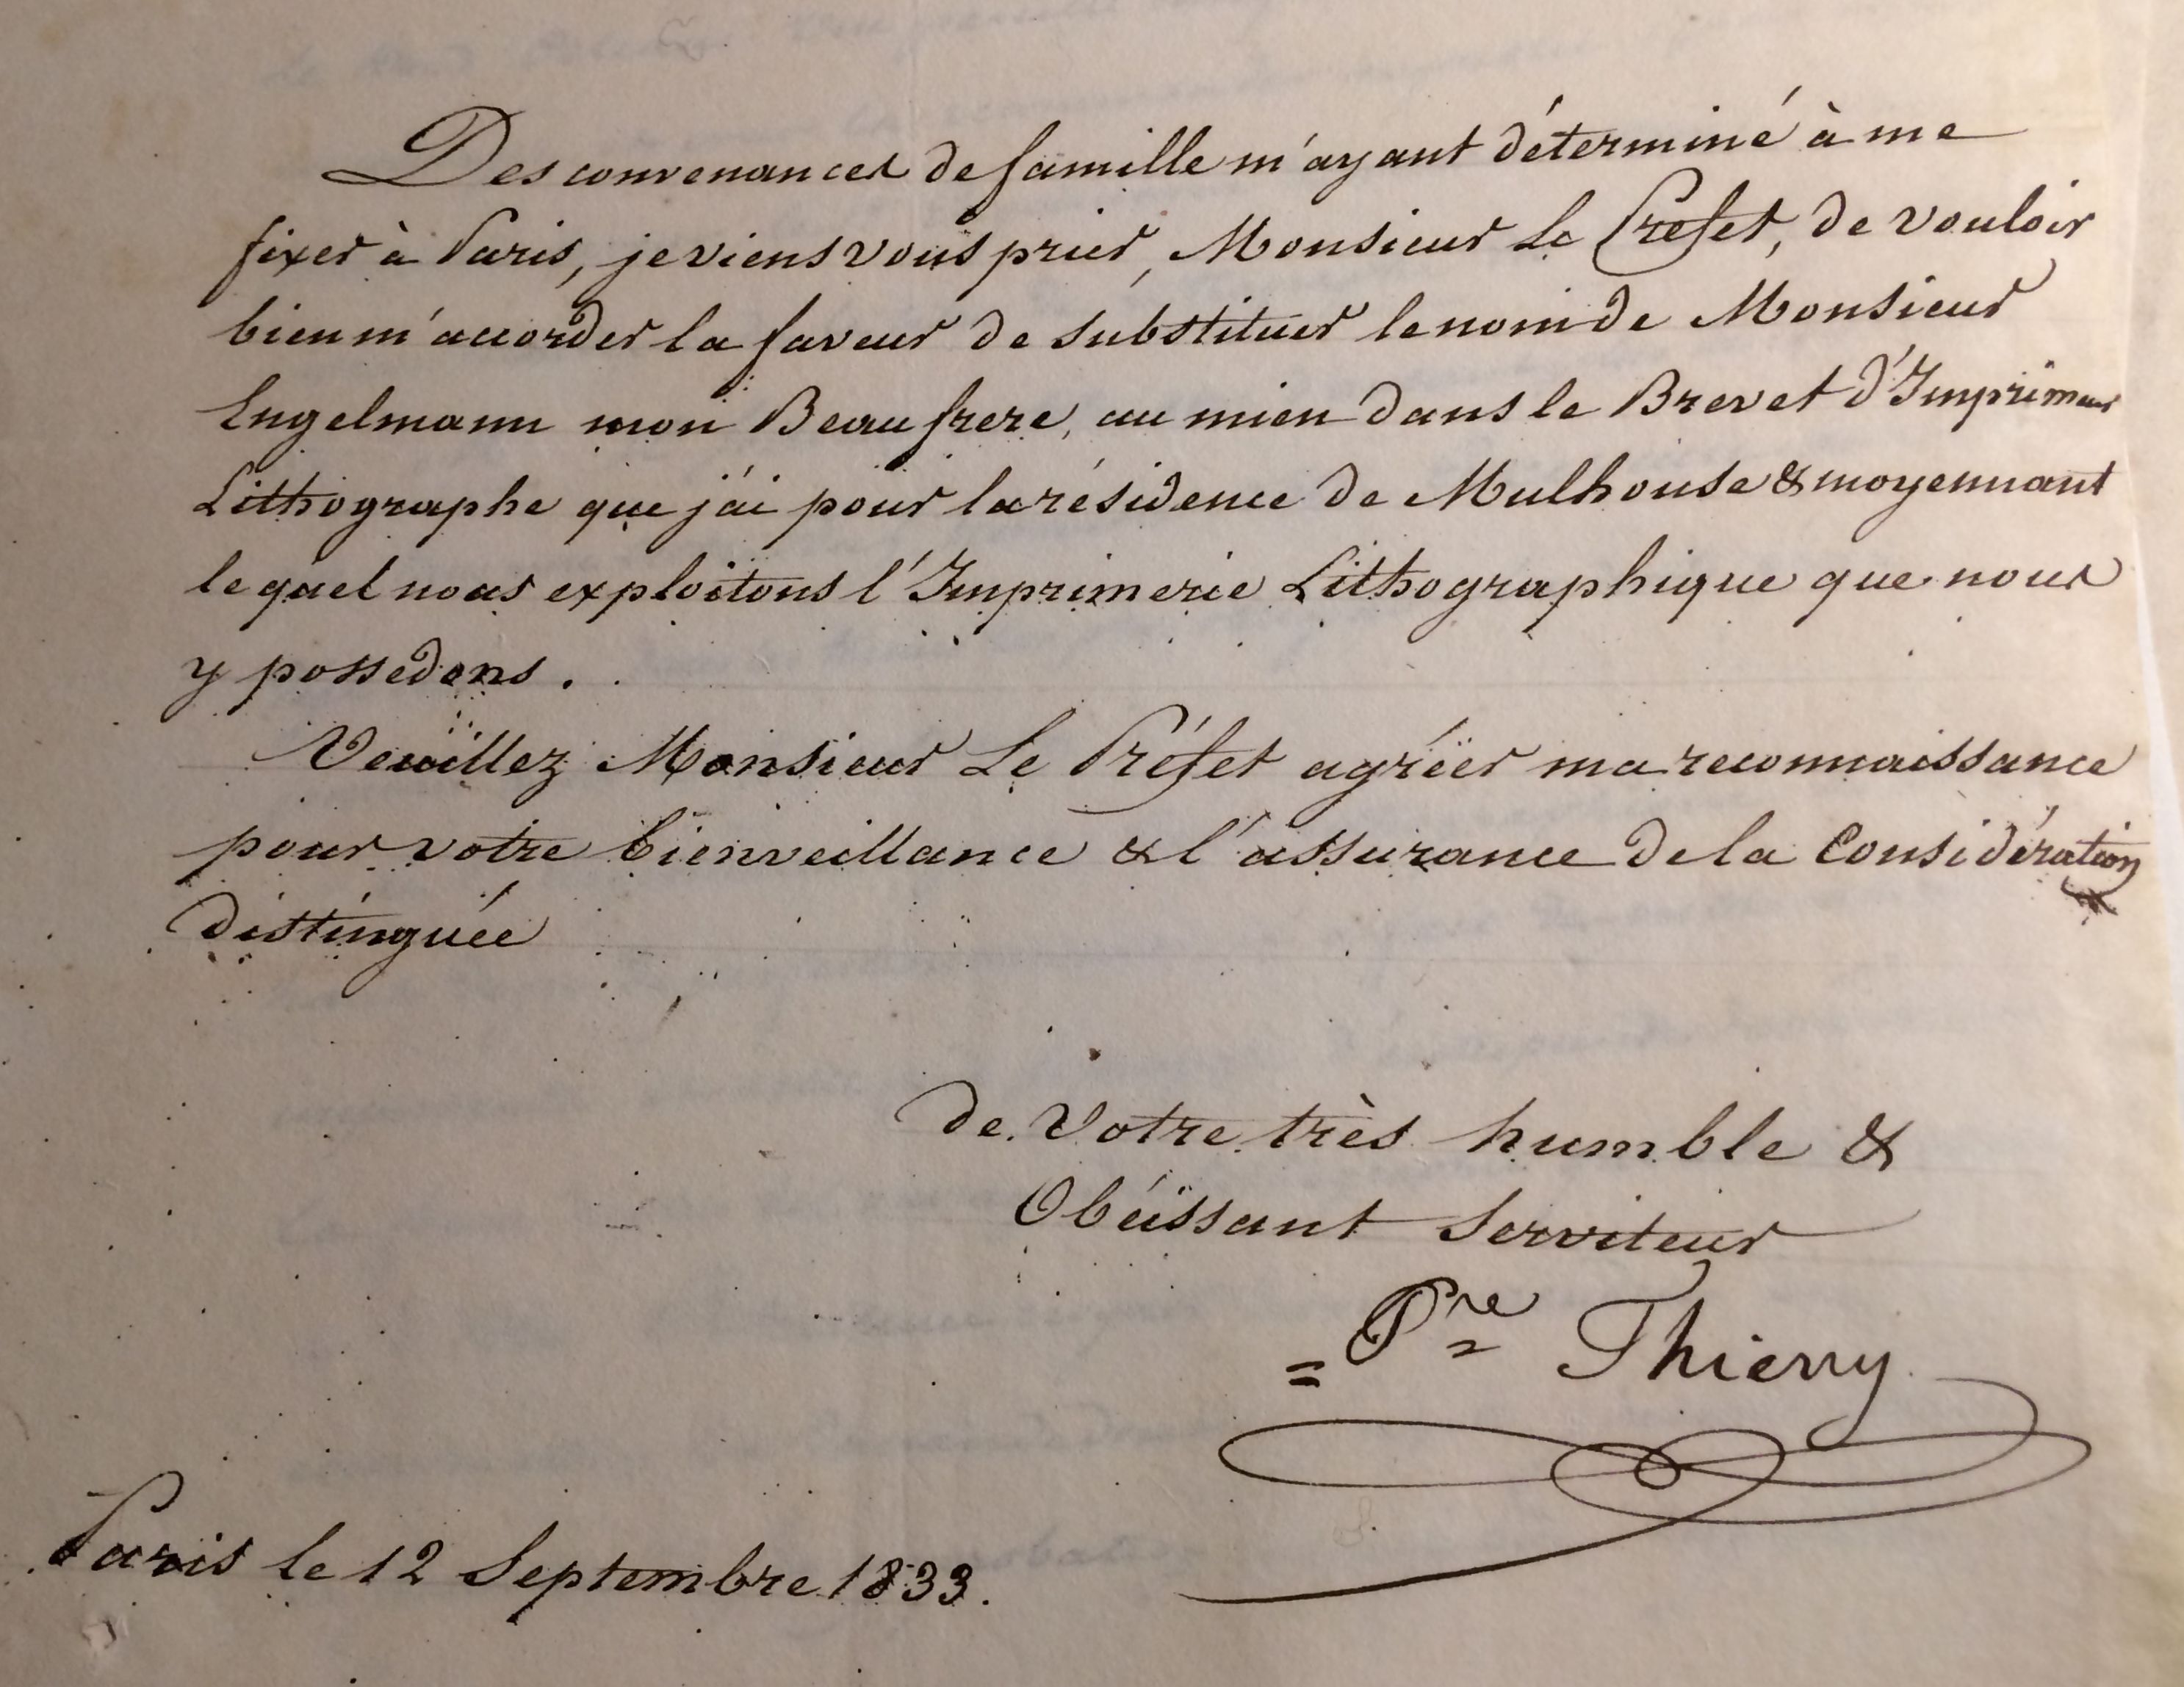 Des convenances de famille m'ayant déterminé à me
fixer à Paris, je viens vous prier, Monsieur Le Préfet, de vouloir
bien m'accorder la faveur de substituer le nom de Monsieur
Engelmann mon Beaufrere, au mien dans le Brevet d'Imprimeur
Lithographe que j'ai pour la résidence de Mulhouse & moyennant
lequel nous exploitons l'Imprimerie Lithographique que nous
y possedons.
Veuillez Monsieur Le Préfet agréer ma reconnaissance
pour votre bienveillance & l'assurance de la Considération
distinguée
de Votre très humble &
Obéissant Serviteur
= Pre Thierry
Paris le 12 Septembre 1833.